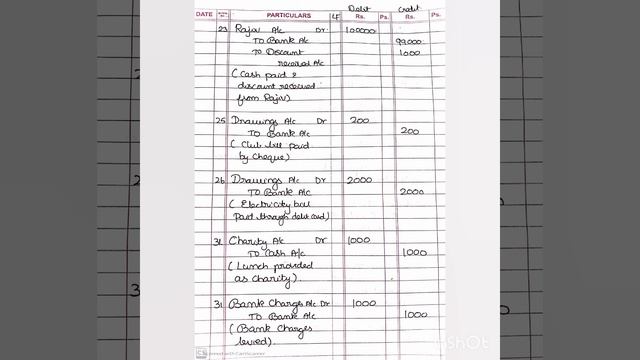 Debit credit
DATE PARTICULARS LF Rs. Ps. Rs. Ps.
23 Rajiv A/c Dr 100000
To Bank A/c 99000
To Discount 1000
received A/c
(Cash paid &
discount received
from Rajiv)
25 Drawings A/c Dr 200
To Bank A/c 200
(Club bill paid
by cheque)
26 Drawings A/c Dr 2000
To Bank A/c 2000
(Electricity bill
paid through debit card)
31 Charity A/c Dr 1000
To Cash A/c 1000
(Lunch provided
as Charity).
31 Bank Charges A/c Dr 1000
To Bank A/c 1000
(Bank Charges
levied).
CS